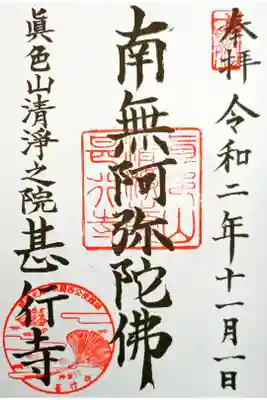 奉拝 令和二年十一月一日
南無阿弥陀佛
眞色山清淨之院 甚行寺